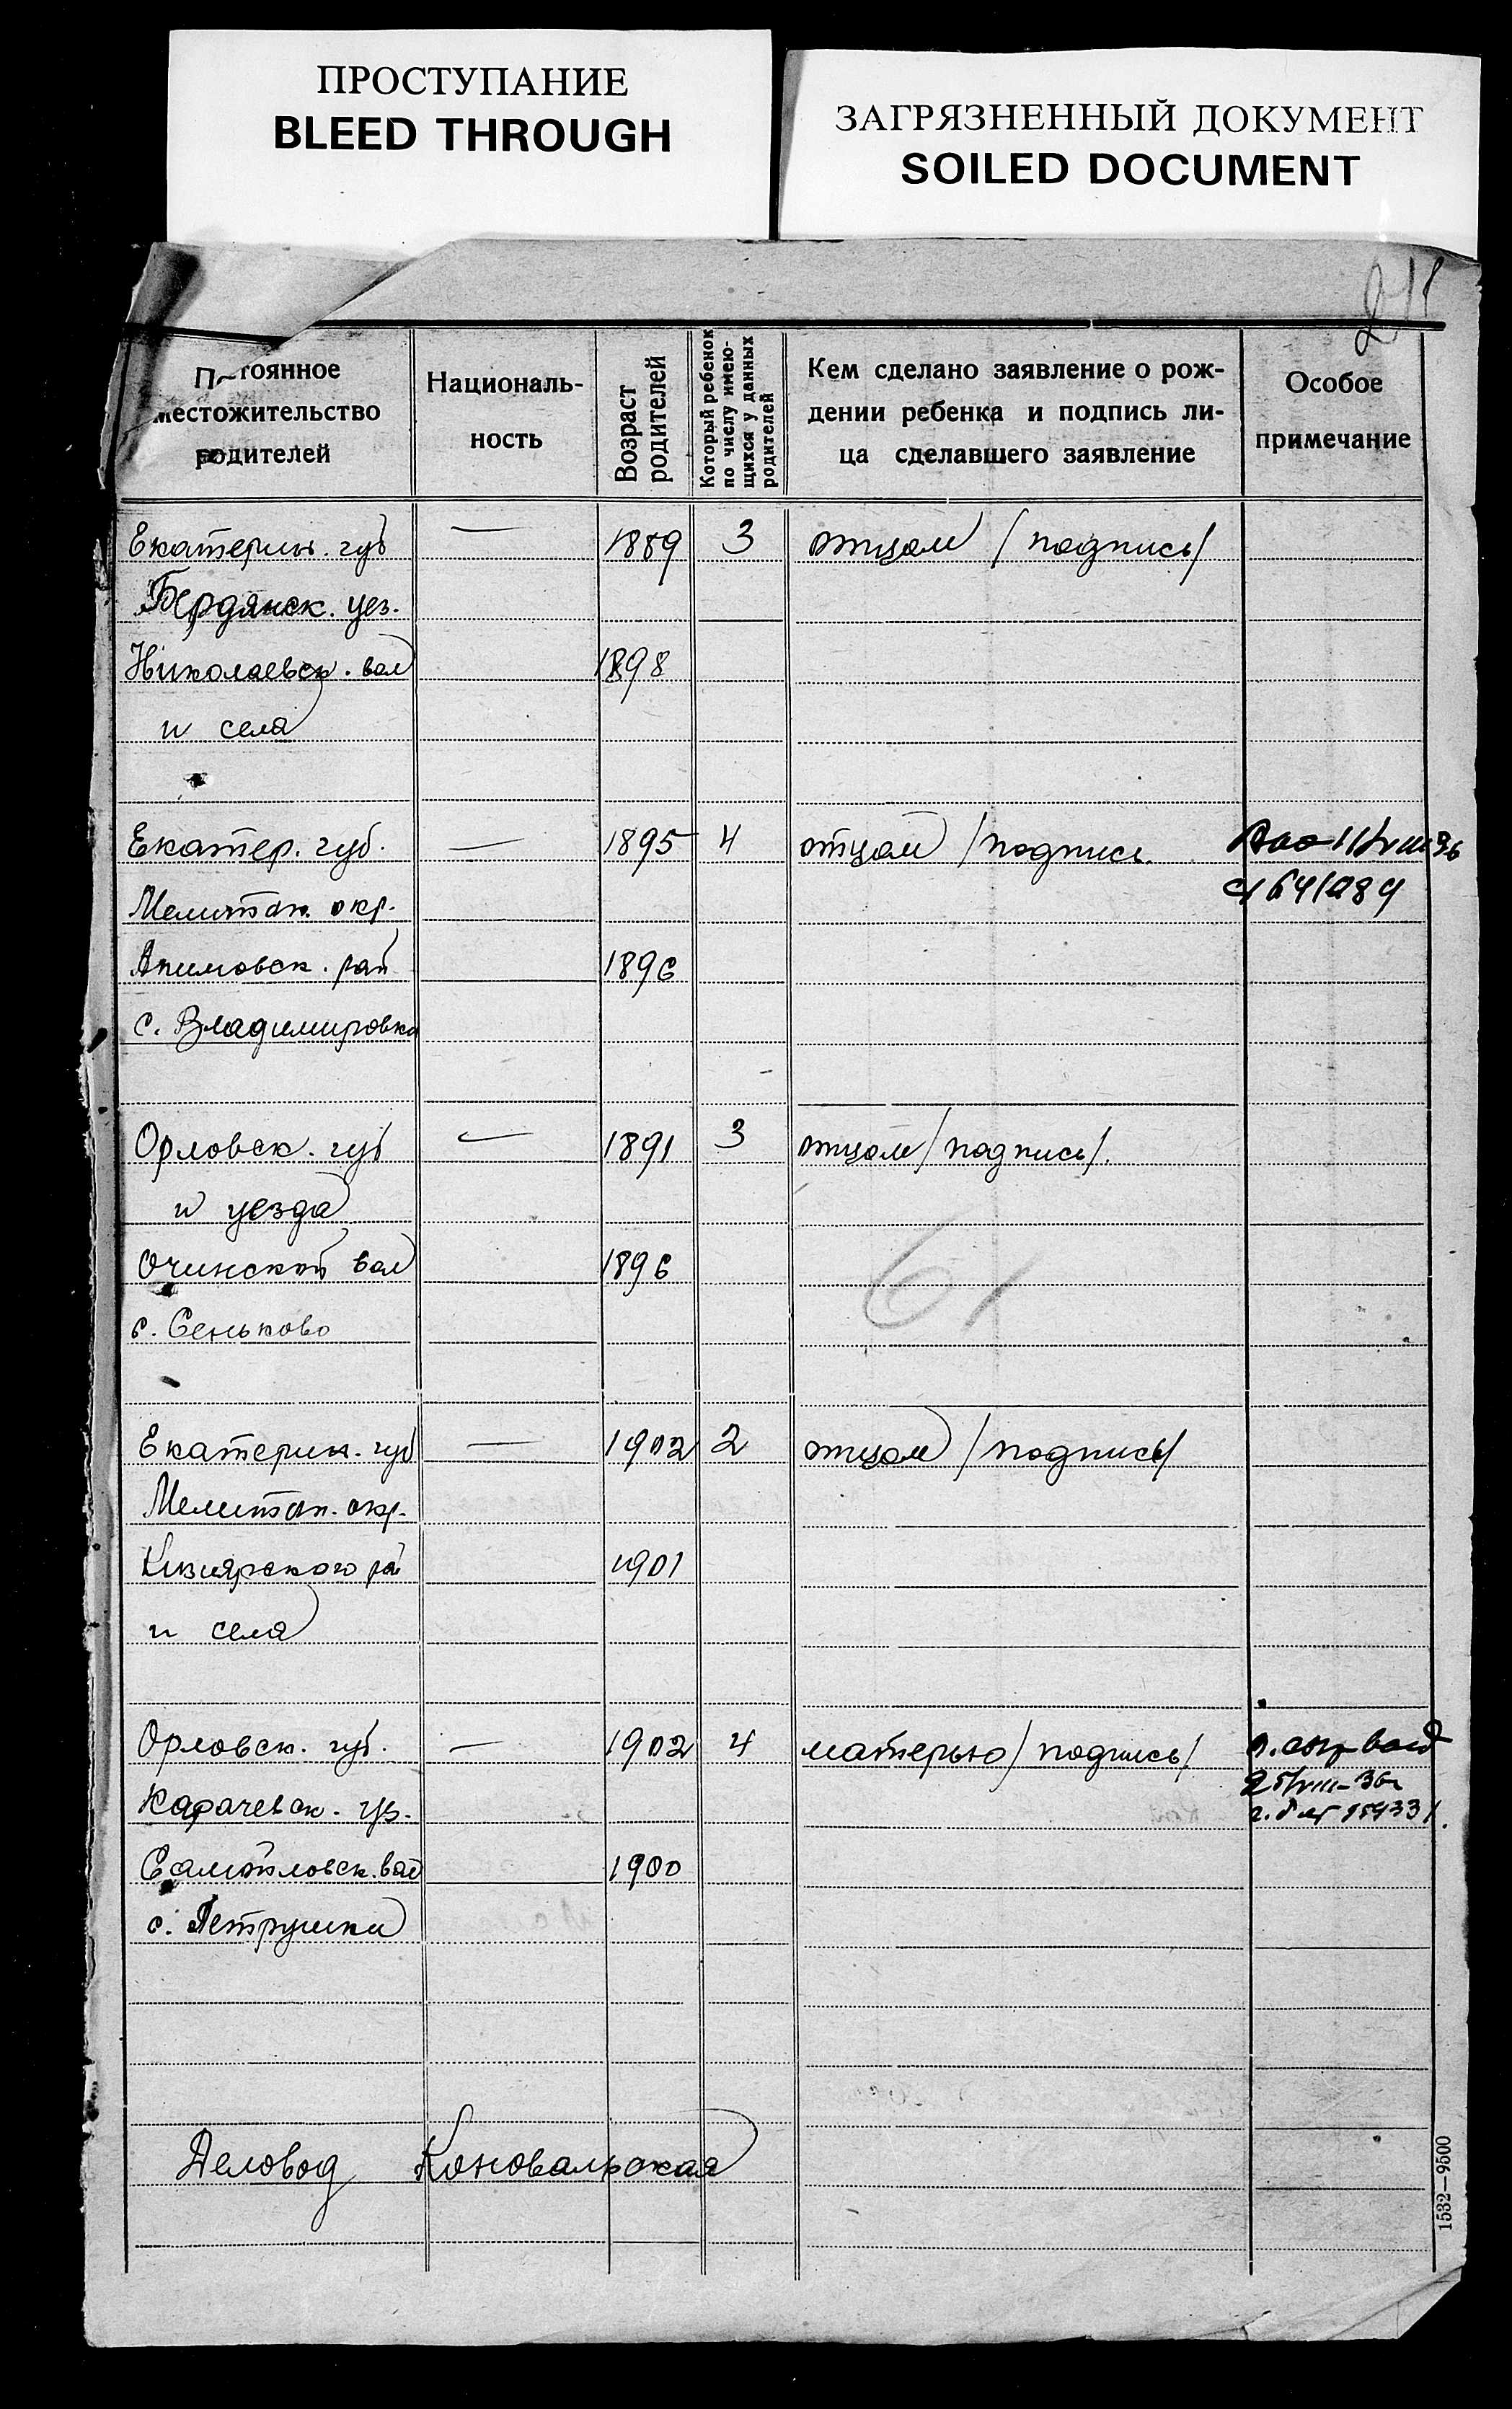 ПРОСТУПАНИЕ
BLEED THROUGH
ЗАГРЯЗНЕННЫЙ ДОКУМЕНТ
SOILED DOCUMENT
П~тоянное местожительство родителей
Националь-
ность
Возраст родителей
Который ребенок по числу имею-щихся у данных родителей
Кем сделано заявление о рож-
дении ребенка и подпись ли-
ца сделавшего заявление
Особое
примечание
Екатерин. губ — 1889 3 отцом /подпись/
Бердянск. уез.
Николаевск. вол 1898
и села
Екатер. губ. — 1895 4 отцом /подпись
Мелитоп. окр.
Акимовск. рай 1896
с. Владимировка
Орловск. губ — 1891 3 отцом /подпись/.
и уезда
вол 1896
с. Сеньково
61
Екатерин. губ — 1902 2 отцом /подпись/
Мелитоп. окр.
Кизиярского рай 1901
и села
Орловск. губ. — 1902 4 матерью /подпись/
Карачевск. уз.
вол 1900
с. Петрушки
Деловод Коновальская
1532—9500